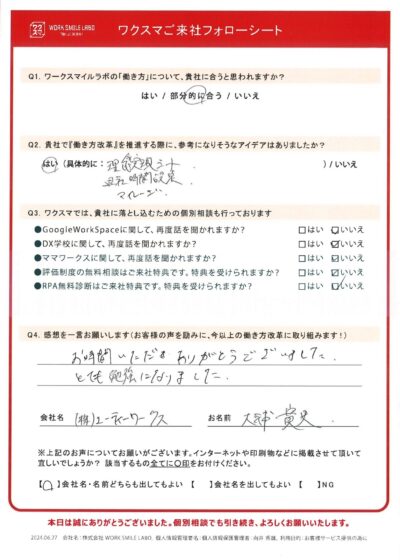 ワクスマ
WORK SMILE LABO
ワクスマご来社フォローシート
Q1. ワークスマイルラボの「働き方」について、貴社に合うと思われますか?
はい / 部分的に合う / いいえ
Q2. 貴社で『働き方改革』を推進する際に、参考になりそうなアイデアはありましたか?
はい (具体的に: 理念実現シート ) / いいえ
退社時間設定
マイレージ
Q3. ワクスマでは、貴社に落とし込むための個別相談も行っております
●GoogleWorkSpaceに関して、再度話を聞かれますか? □はい ☑いいえ
●DX学校に関して、再度話を聞かれますか? □はい ☑いいえ
●ママワークスに関して、再度話を聞かれますか? □はい ☑いいえ
●評価制度の無料相談はご来社特典です。特典を受けられますか? □はい ☑いいえ
●RPA無料診断はご来社特典です。特典を受けられますか? □はい ☑いいえ
Q4. 感想を一言お願いします(お客様の声を励みに、今以上の働き方改革に取り組みます!)
お時間いただきありがとうございました。
とても勉強になりました。
会社名 (株)エーティーワークス お名前 大浦
※上記のお声についてお願いがございます。インターネットや印刷物などに掲載させて頂いて
宜しいでしょうか? 該当するもの全てに〇印をお付けください。
【〇】会社名・名前どちらも出してもよい 【 】会社名を出してもよい 【 】NG
本日は誠にありがとうございました。個別相談でも引き続き、よろしくお願いいたします。
2024.06.27 会社名:株式会社 WORK SMILE LABO、個人情報管理者名:個人情報保護管理者:向井 秀雄、利用目的:お客様サービス提供の為に